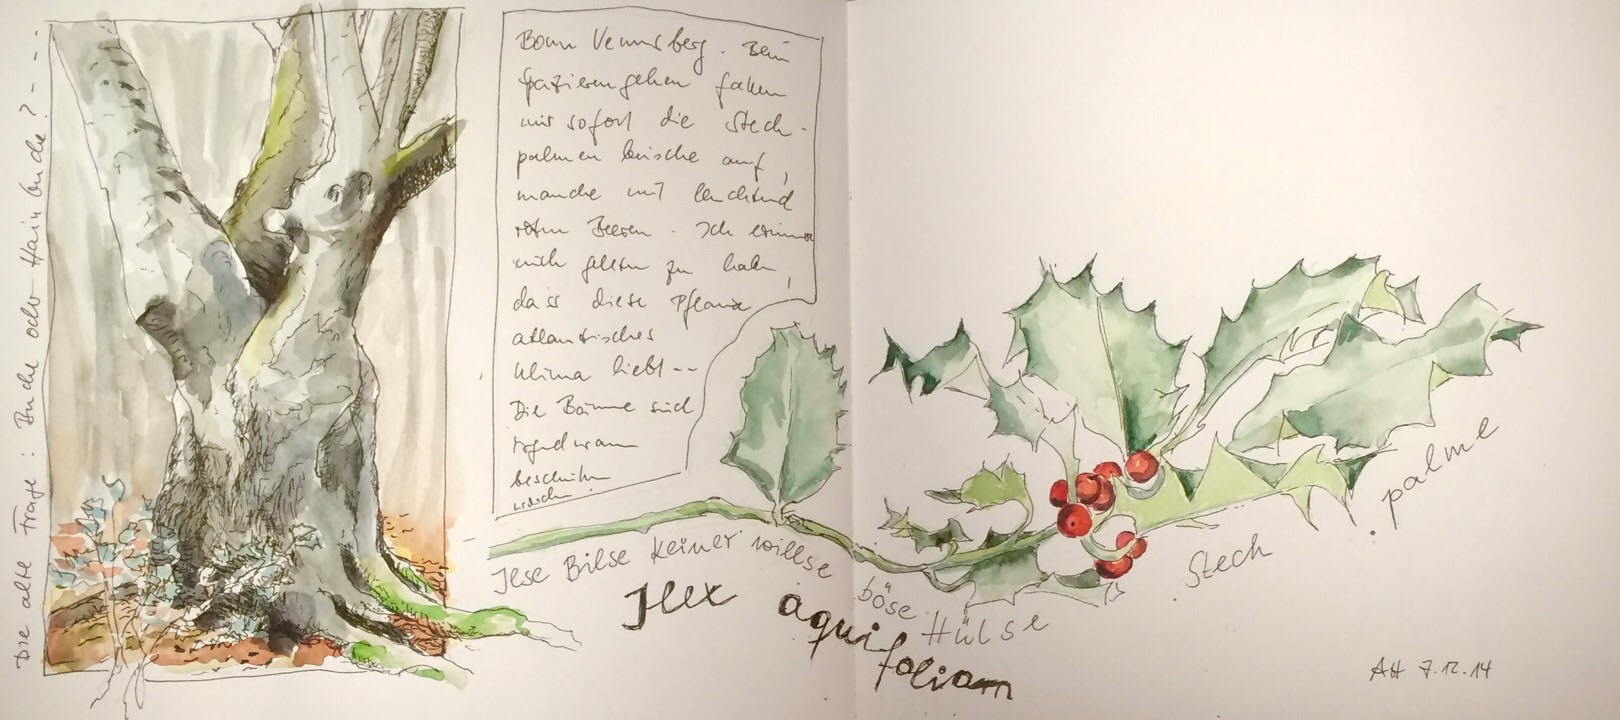 Die alte Frage : Buche oder Hainbuche? - - -
Bonn Venusberg. Beim
Spazierengehen fallen
mir sofort die Stech-
palmenbüsche auf,
manche mit leuchtend
roten Beeren. Ich erinnere
mich gelesen zu haben,
dass diese Pflanze
atlantisches
Klima liebt --
Die Bäume sind
irgendwann
beschnitten
worden.
Ilse Bilse Keiner willse
böse Hülse
Ilex aquifolium
Stech
palme
AH 7.12.14